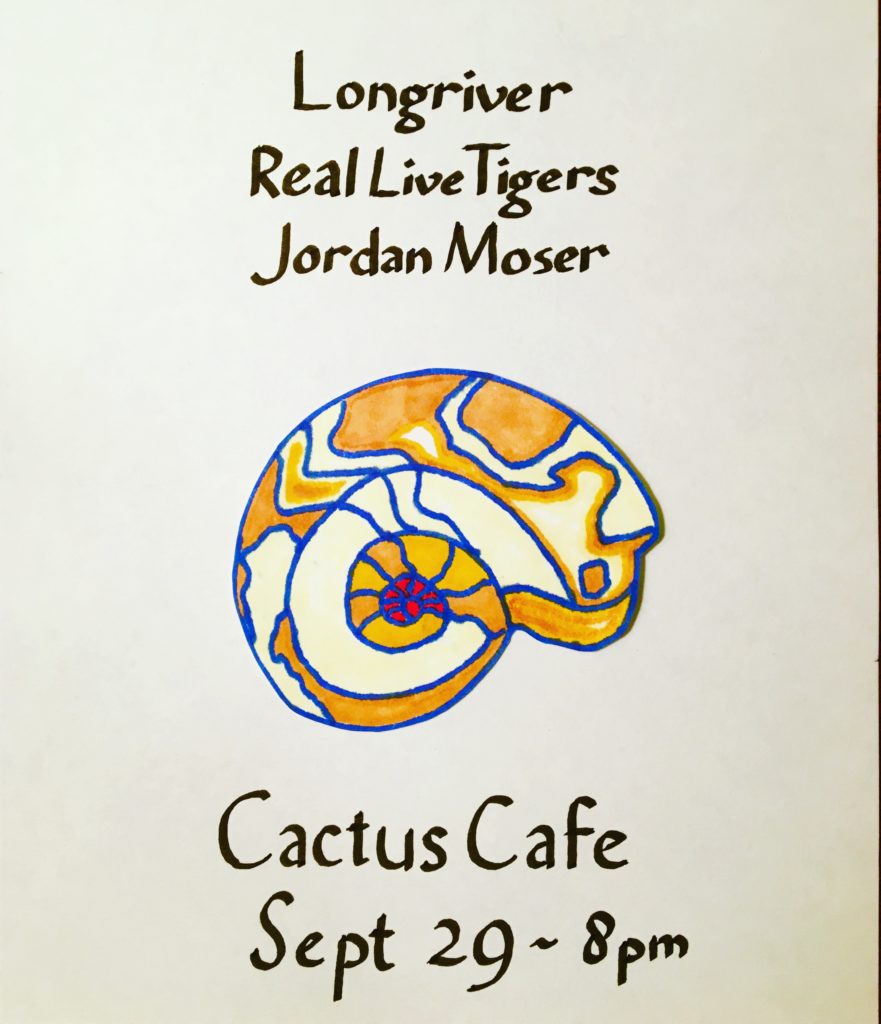 Longriver
Real Live Tigers
Jordan Moser
Cactus Cafe
Sept 29 ~ 8pm